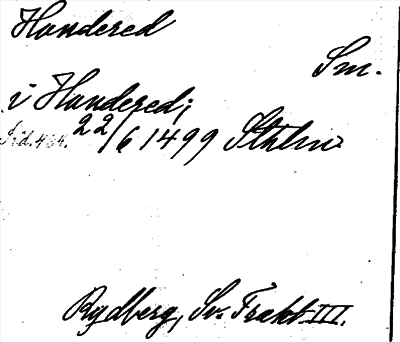 Handered
Sm.
i Handered;
Sid. 434. 22/6 1499 Sthlm
Rydberg, Sv. Trakt. III.